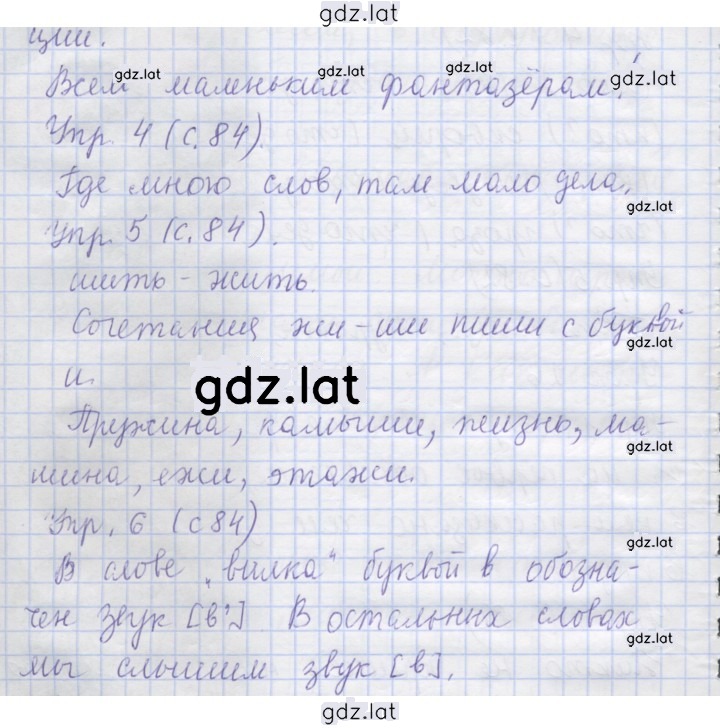 gdz.lat
ции.
gdz.lat gdz.lat gdz.lat gdz.lat
Всем маленьким фантазёрам!
Упр. 4 (с. 84).
Где много слов, там мало дела.
gdz.lat
Упр. 5 (с. 84).
шить - жить.
Сочетания жи-ши пиши с буквой
gdz.lat
и.
gdz.lat
Пружина, камыши, жизнь, ма-
gdz.lat
шина, ежи, этажи.
Упр. 6 (с 84)
gdz.lat
В слове „вилка" буквой в обозна-
чен звук [в']. В остальных словах
gdz.lat
мы слышим звук [в].
gdz.lat